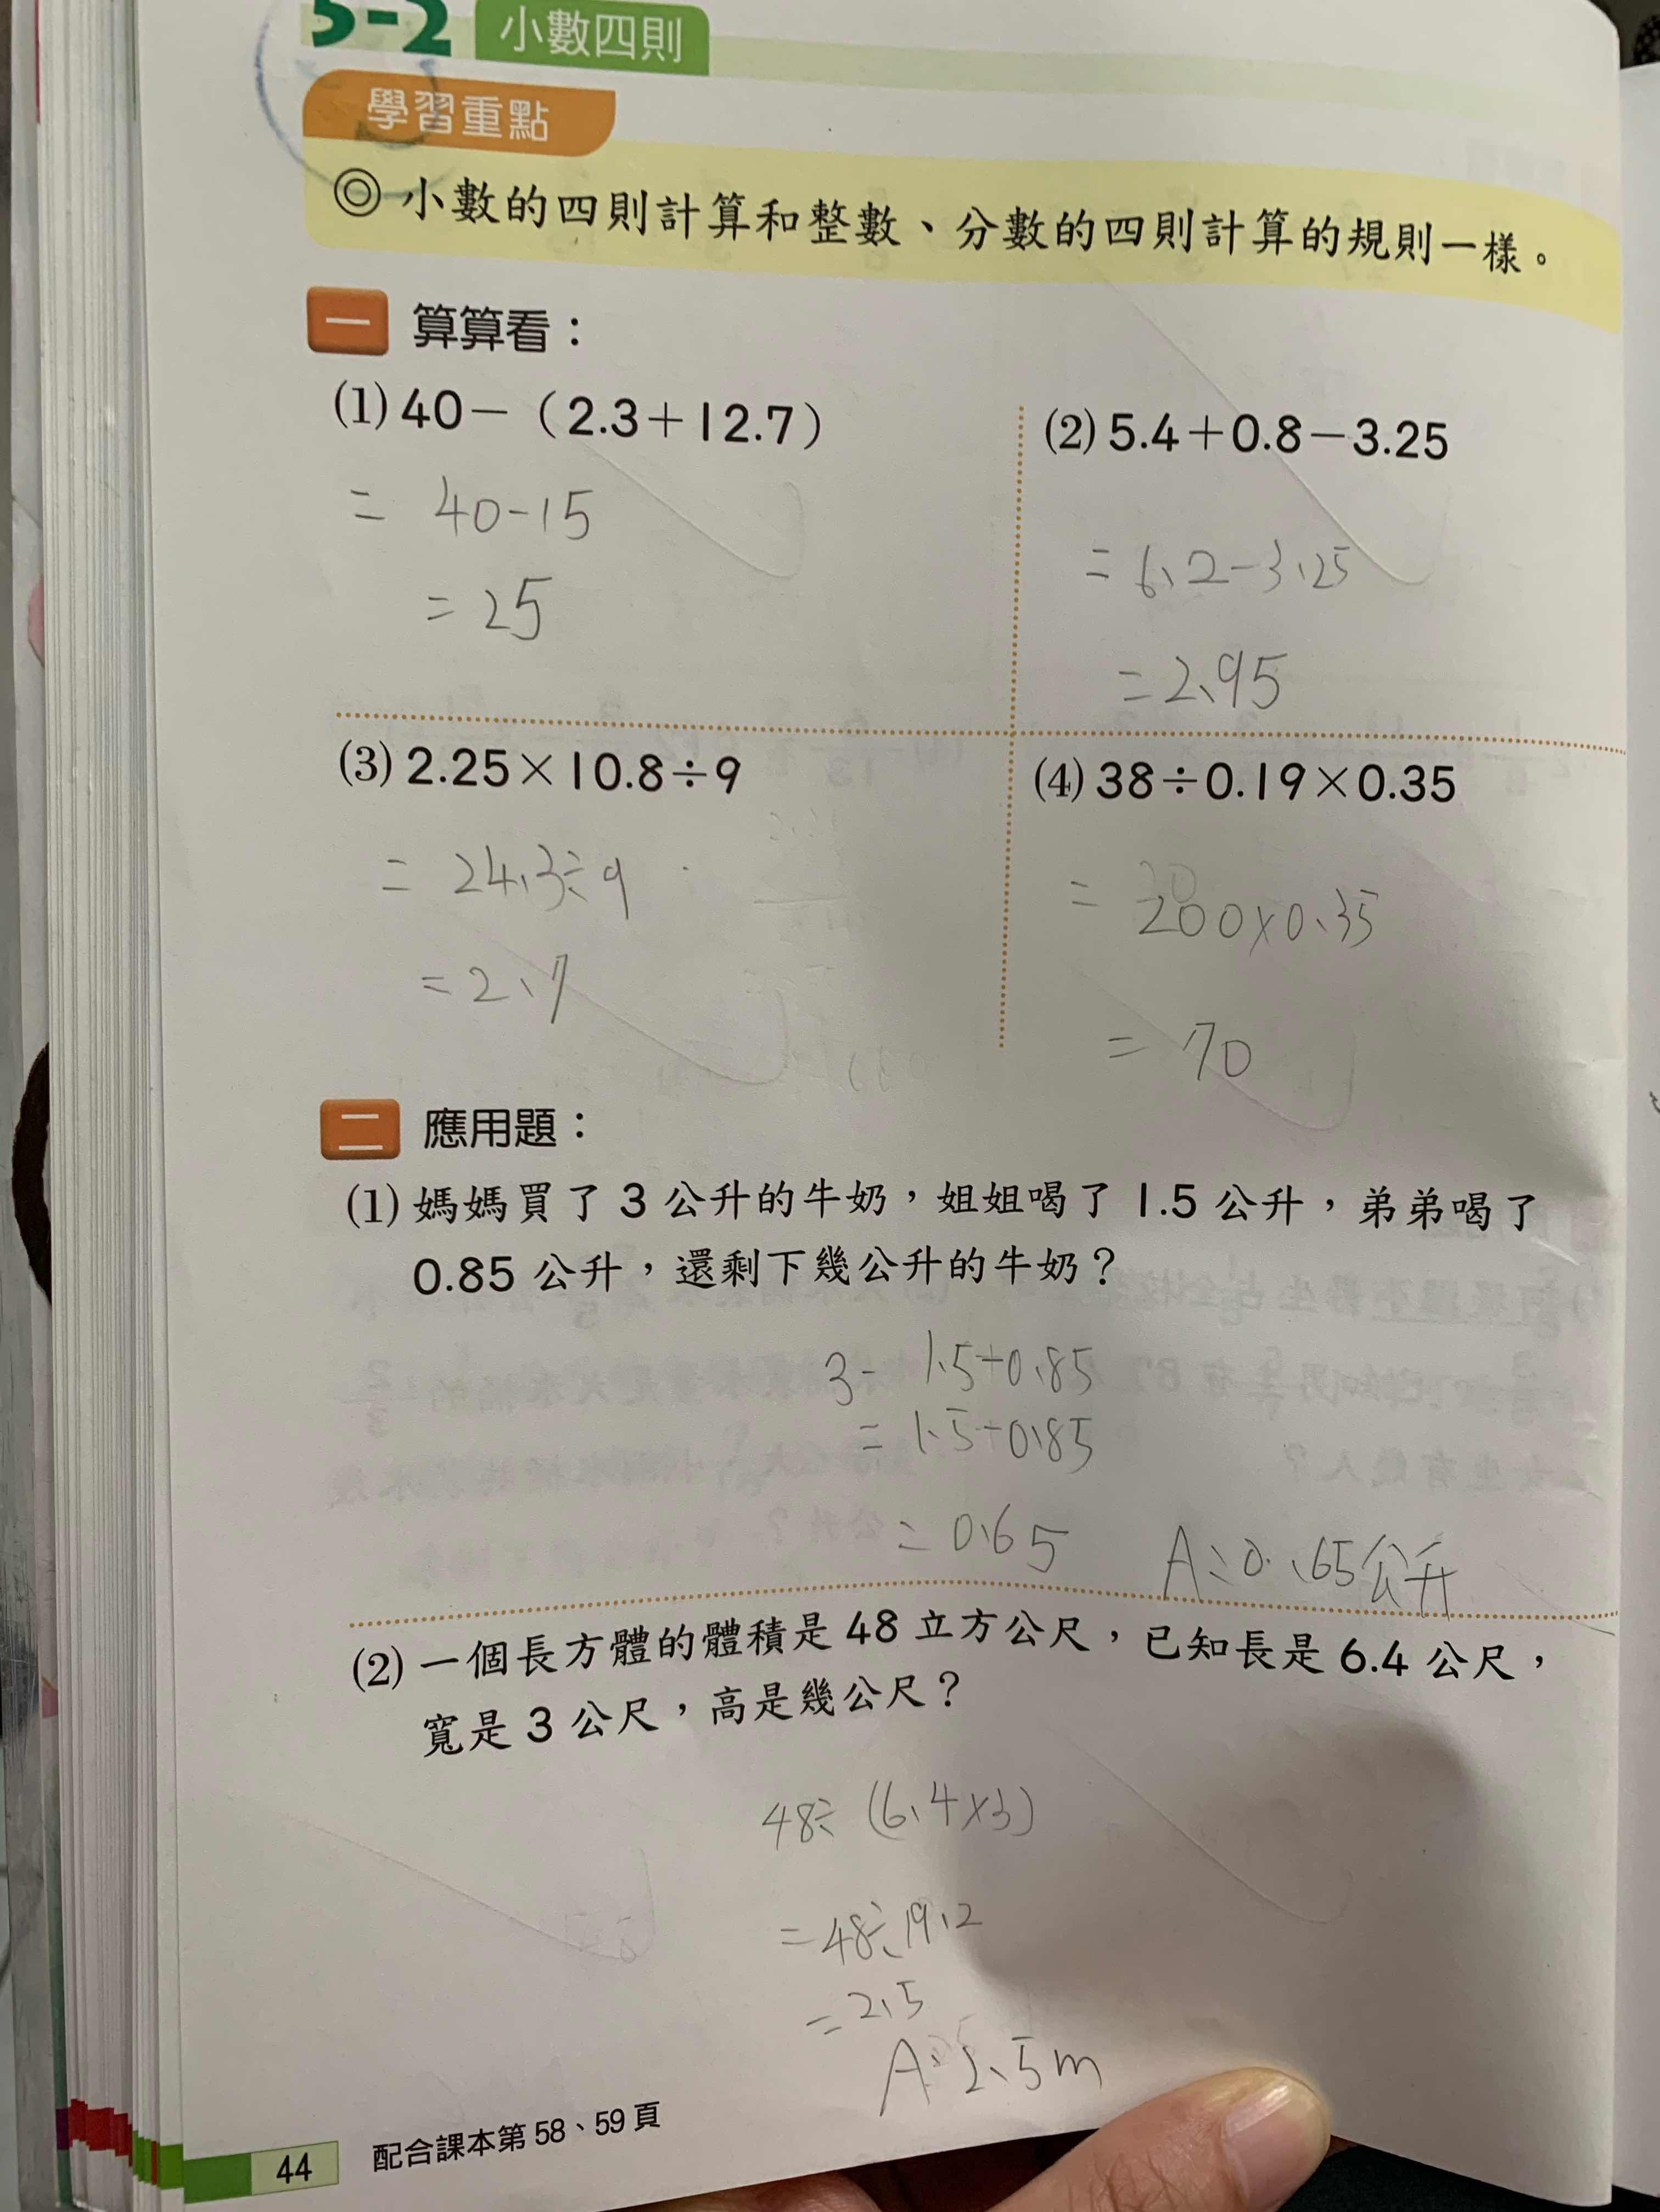 5-2 小數四則
學習重點
◎ 小數的四則計算和整數、分數的四則計算的規則一樣。
一 算算看：
(1) 40－（2.3＋12.7）
= 40-15
= 25
(2) 5.4＋0.8－3.25
= 6.2-3.25
= 2.95
(3) 2.25×10.8÷9
= 24.3÷9
= 2.7
(4) 38÷0.19×0.35
= 200×0.35
= 70
二 應用題：
(1) 媽媽買了 3 公升的牛奶，姐姐喝了 1.5 公升，弟弟喝了
0.85 公升，還剩下幾公升的牛奶？
3- 1.5-0.85
= 1.5-0.85
= 0.65
A:0.65公升
(2) 一個長方體的體積是 48 立方公尺，已知長是 6.4 公尺，
寬是 3 公尺，高是幾公尺？
48÷(6.4×3)
= 48÷19.2
= 2.5
A:2.5m
44 配合課本第 58、59 頁